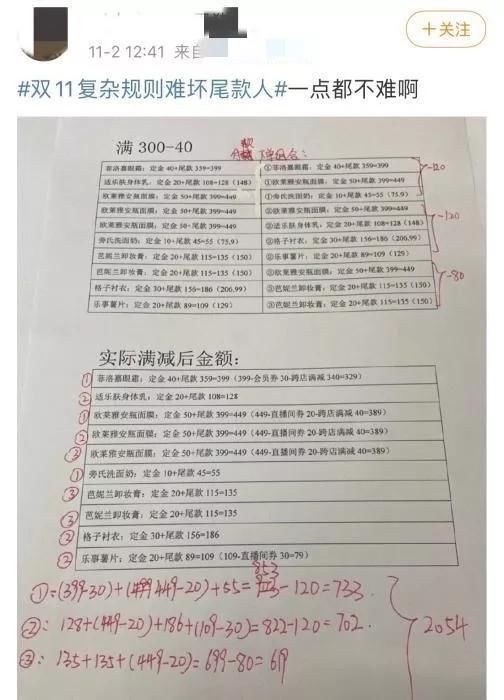 +关注
11-2 12:41 来自
#双11复杂规则难坏尾款人#一点都不难啊
满 300-40
分款下单组合:
菲洛嘉眼霜: 定金 40+尾款 359=399
①菲洛嘉眼霜: 定金 40+尾款 359=399
适乐肤身体乳: 定金 20+尾款 108=128 (148)
①欧莱雅安瓶面膜: 定金 50+尾款 399=449
欧莱雅安瓶面膜: 定金 50+尾款 399=449
①旁氏洗面奶: 定金 10+尾款 45=55 (75.9)
-120
欧莱雅安瓶面膜: 定金 50+尾款 399=449
②欧莱雅安瓶面膜: 定金 50+尾款 399=449
欧莱雅安瓶面膜: 定金 50+尾款 399=449
②适乐肤身体乳: 定金 20+尾款 108=128 (148)
旁氏洗面奶: 定金 10+尾款 45=55 (75.9)
②格子衬衣: 定金 30+尾款 156=186 (206.99)
芭妮兰卸妆膏: 定金 20+尾款 115=135 (150)
②乐事薯片: 定金 20+尾款 89=109 (129)
-120
芭妮兰卸妆膏: 定金 20+尾款 115=135 (150)
③欧莱雅安瓶面膜: 定金 50+尾款 399=449
格子衬衣: 定金 30+尾款 156=186 (206.99)
③芭妮兰卸妆膏: 定金 20+尾款 115=135 (150)
乐事薯片: 定金 20+尾款 89=109 (129)
③芭妮兰卸妆膏: 定金 20+尾款 115=135 (150)
-80
实际满减后金额:
① 菲洛嘉眼霜: 定金 40+尾款 359=399 (399-会员券 30-跨店满减 340=329)
② 适乐肤身体乳: 定金 20+尾款 108=128
① 欧莱雅安瓶面膜: 定金 50+尾款 399=449 (449-直播间券 20-跨店满减 40=389)
② 欧莱雅安瓶面膜: 定金 50+尾款 399=449 (449-直播间券 20-跨店满减 40=389)
③ 欧莱雅安瓶面膜: 定金 50+尾款 399=449 (449-直播间券 20-跨店满减 40=389)
① 旁氏洗面奶: 定金 10+尾款 45=55
③ 芭妮兰卸妆膏: 定金 20+尾款 115=135
③ 芭妮兰卸妆膏: 定金 20+尾款 115=135
② 格子衬衣: 定金 30+尾款 156=186
② 乐事薯片: 定金 20+尾款 89=109 (109-直播间券 30=79)
①=(399-30)+(449-20)+55=853-120=733
②: 128+(449-20)+186+(109-30)=822-120=702
③: 135+135+(449-20)=699-80=619
2054